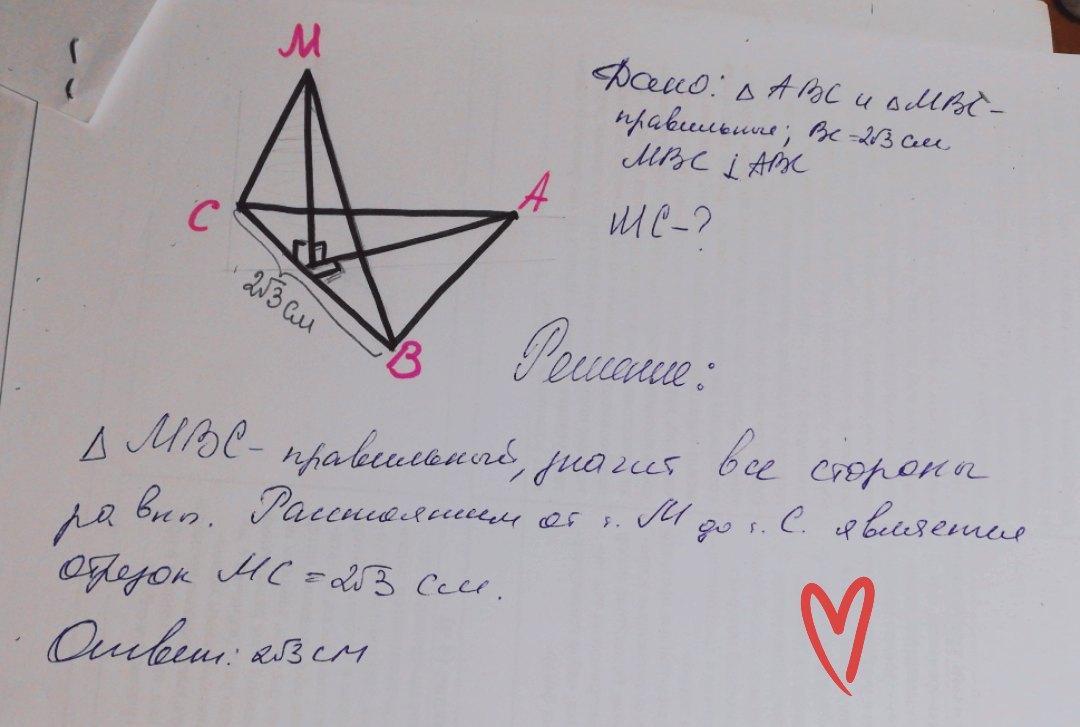 M
C
A
B
2√3 см
Дано: △ ABC и △ MBC -
правильные; BC = 2√3 см
MBC ⊥ ABC
MC - ?
Решение:
△ MBC - правильный, значит все стороны
равны. Расстоянием от т. M до т. C. является
отрезок MC = 2√3 см.
Ответ: 2√3 см